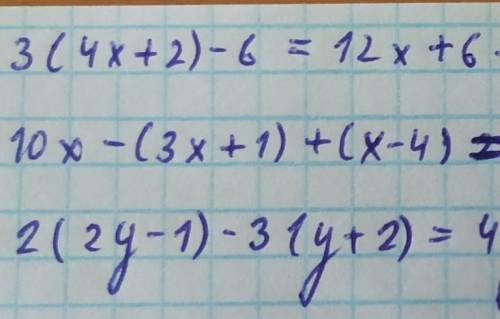 3(4x+2)-6 = 12x+6
10x-(3x+1)+(x-4)=
2(2y-1)-3(y+2)=4